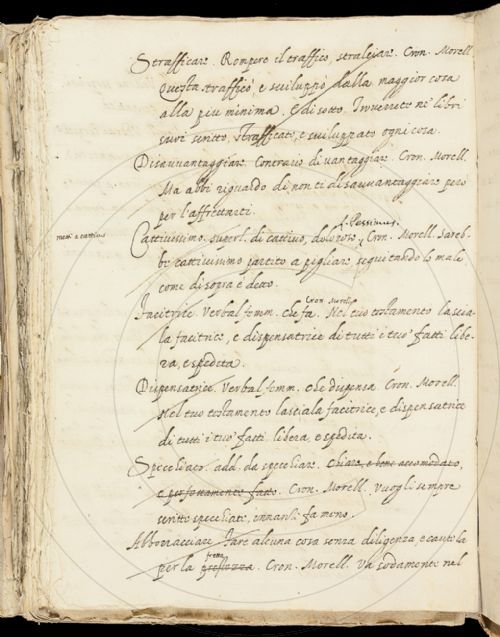 Strafficare. Rompere il traffico, stralciare. Cron. Morell.
Questa traffico, e sviluppò dalla maggior cosa
alla piu minima. E di sotto. Troverrete ne libri
suoi scritto, strafficato, e sviluppato ogni cosa.
Disavvantaggiare. Contrario di vantaggiare. Cron. Morell.
Ma abbi riguardo di non ti disavvantaggiare però
per l'affrettarti.
l. Pessimus.
metti a cattivo
Cattivissimo. superl. di cattivo, doloroso. Cron. Morell. Sareb-
be cattivissimo partito a pigliare seguitando lo male
come di sopra è detto.
Cron. Morell.
Facitrice. Verbal. femm. che fa. Nel tuo testamento lascia-
la facitrice, e dispensatrice di tutti i tuo' fatti libe-
ra, e spedita.
Dispensatrice. Verbal. femm. che dispensa. Cron. Morell.
Nel tuo testamento lasciala facitrice, e dispensatrice
di tutti i tuo' fatti libera, e spedita.
Specchiato. add. da specchiare. Chiaro, e bene accomodato,
e perfettamente fatto. Cron. Morell. Vuogli sempre
scritte specchiate, innanzi fa meno.
Abborracciare. Fare alcuna cosa senza diligenza, e cautela
fretta
per la prestezza. Cron. Morell. Va sodamente nel